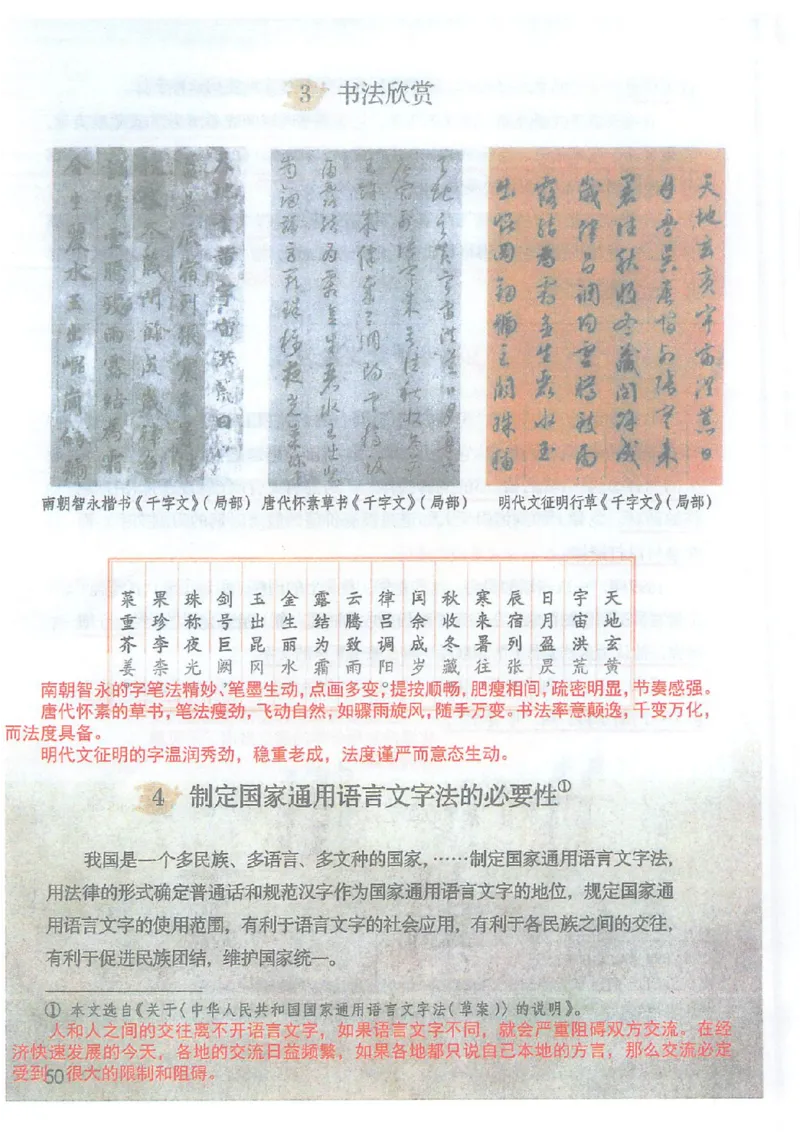 3 书法欣赏
天地玄黄宇宙洪荒日
月盈昃辰宿列張寒来
暑往秋收冬藏閏餘成
歲律吕調陽雲騰致雨
露結為霜金生麗水玉
南朝智永楷书《千字文》(局部)
唐代怀素草书《千字文》(局部)
明代文征明行草《千字文》(局部)
天地玄黄
宇宙洪荒
日月盈昃
辰宿列张
寒来暑往
秋收冬藏
闰余成岁
律吕调阳
云腾致雨
露结为霜
金生丽水
玉出昆冈
剑号巨阙
珠称夜光
果珍李柰
菜重芥姜
南朝智永的字笔法精妙、笔墨生动,点画多变,提按顺畅,肥瘦相间,疏密明显,节奏感强。
唐代怀素的草书,笔法瘦劲,飞动自然,如骤雨旋风,随手万变。书法率意颠逸,千变万化,
而法度具备。
明代文征明的字温润秀劲，稳重老成，法度谨严而意态生动。
4 制定国家通用语言文字法的必要性①
我国是一个多民族、多语言、多文种的国家，……制定国家通用语言文字法，
用法律的形式确定普通话和规范汉字作为国家通用语言文字的地位，规定国家通
用语言文字的使用范围，有利于语言文字的社会应用，有利于各民族之间的交往，
有利于促进民族团结，维护国家统一。
① 本文选自《关于〈中华人民共和国国家通用语言文字法(草案)〉的说明》。
人和人之间的交往离不开语言文字，如果语言文字不同，就会严重阻碍双方交流。在经
济快速发展的今天，各地的交流日益频繁，如果各地都只说自己本地的方言，那么交流必定
受到很大的限制和阻碍。
50